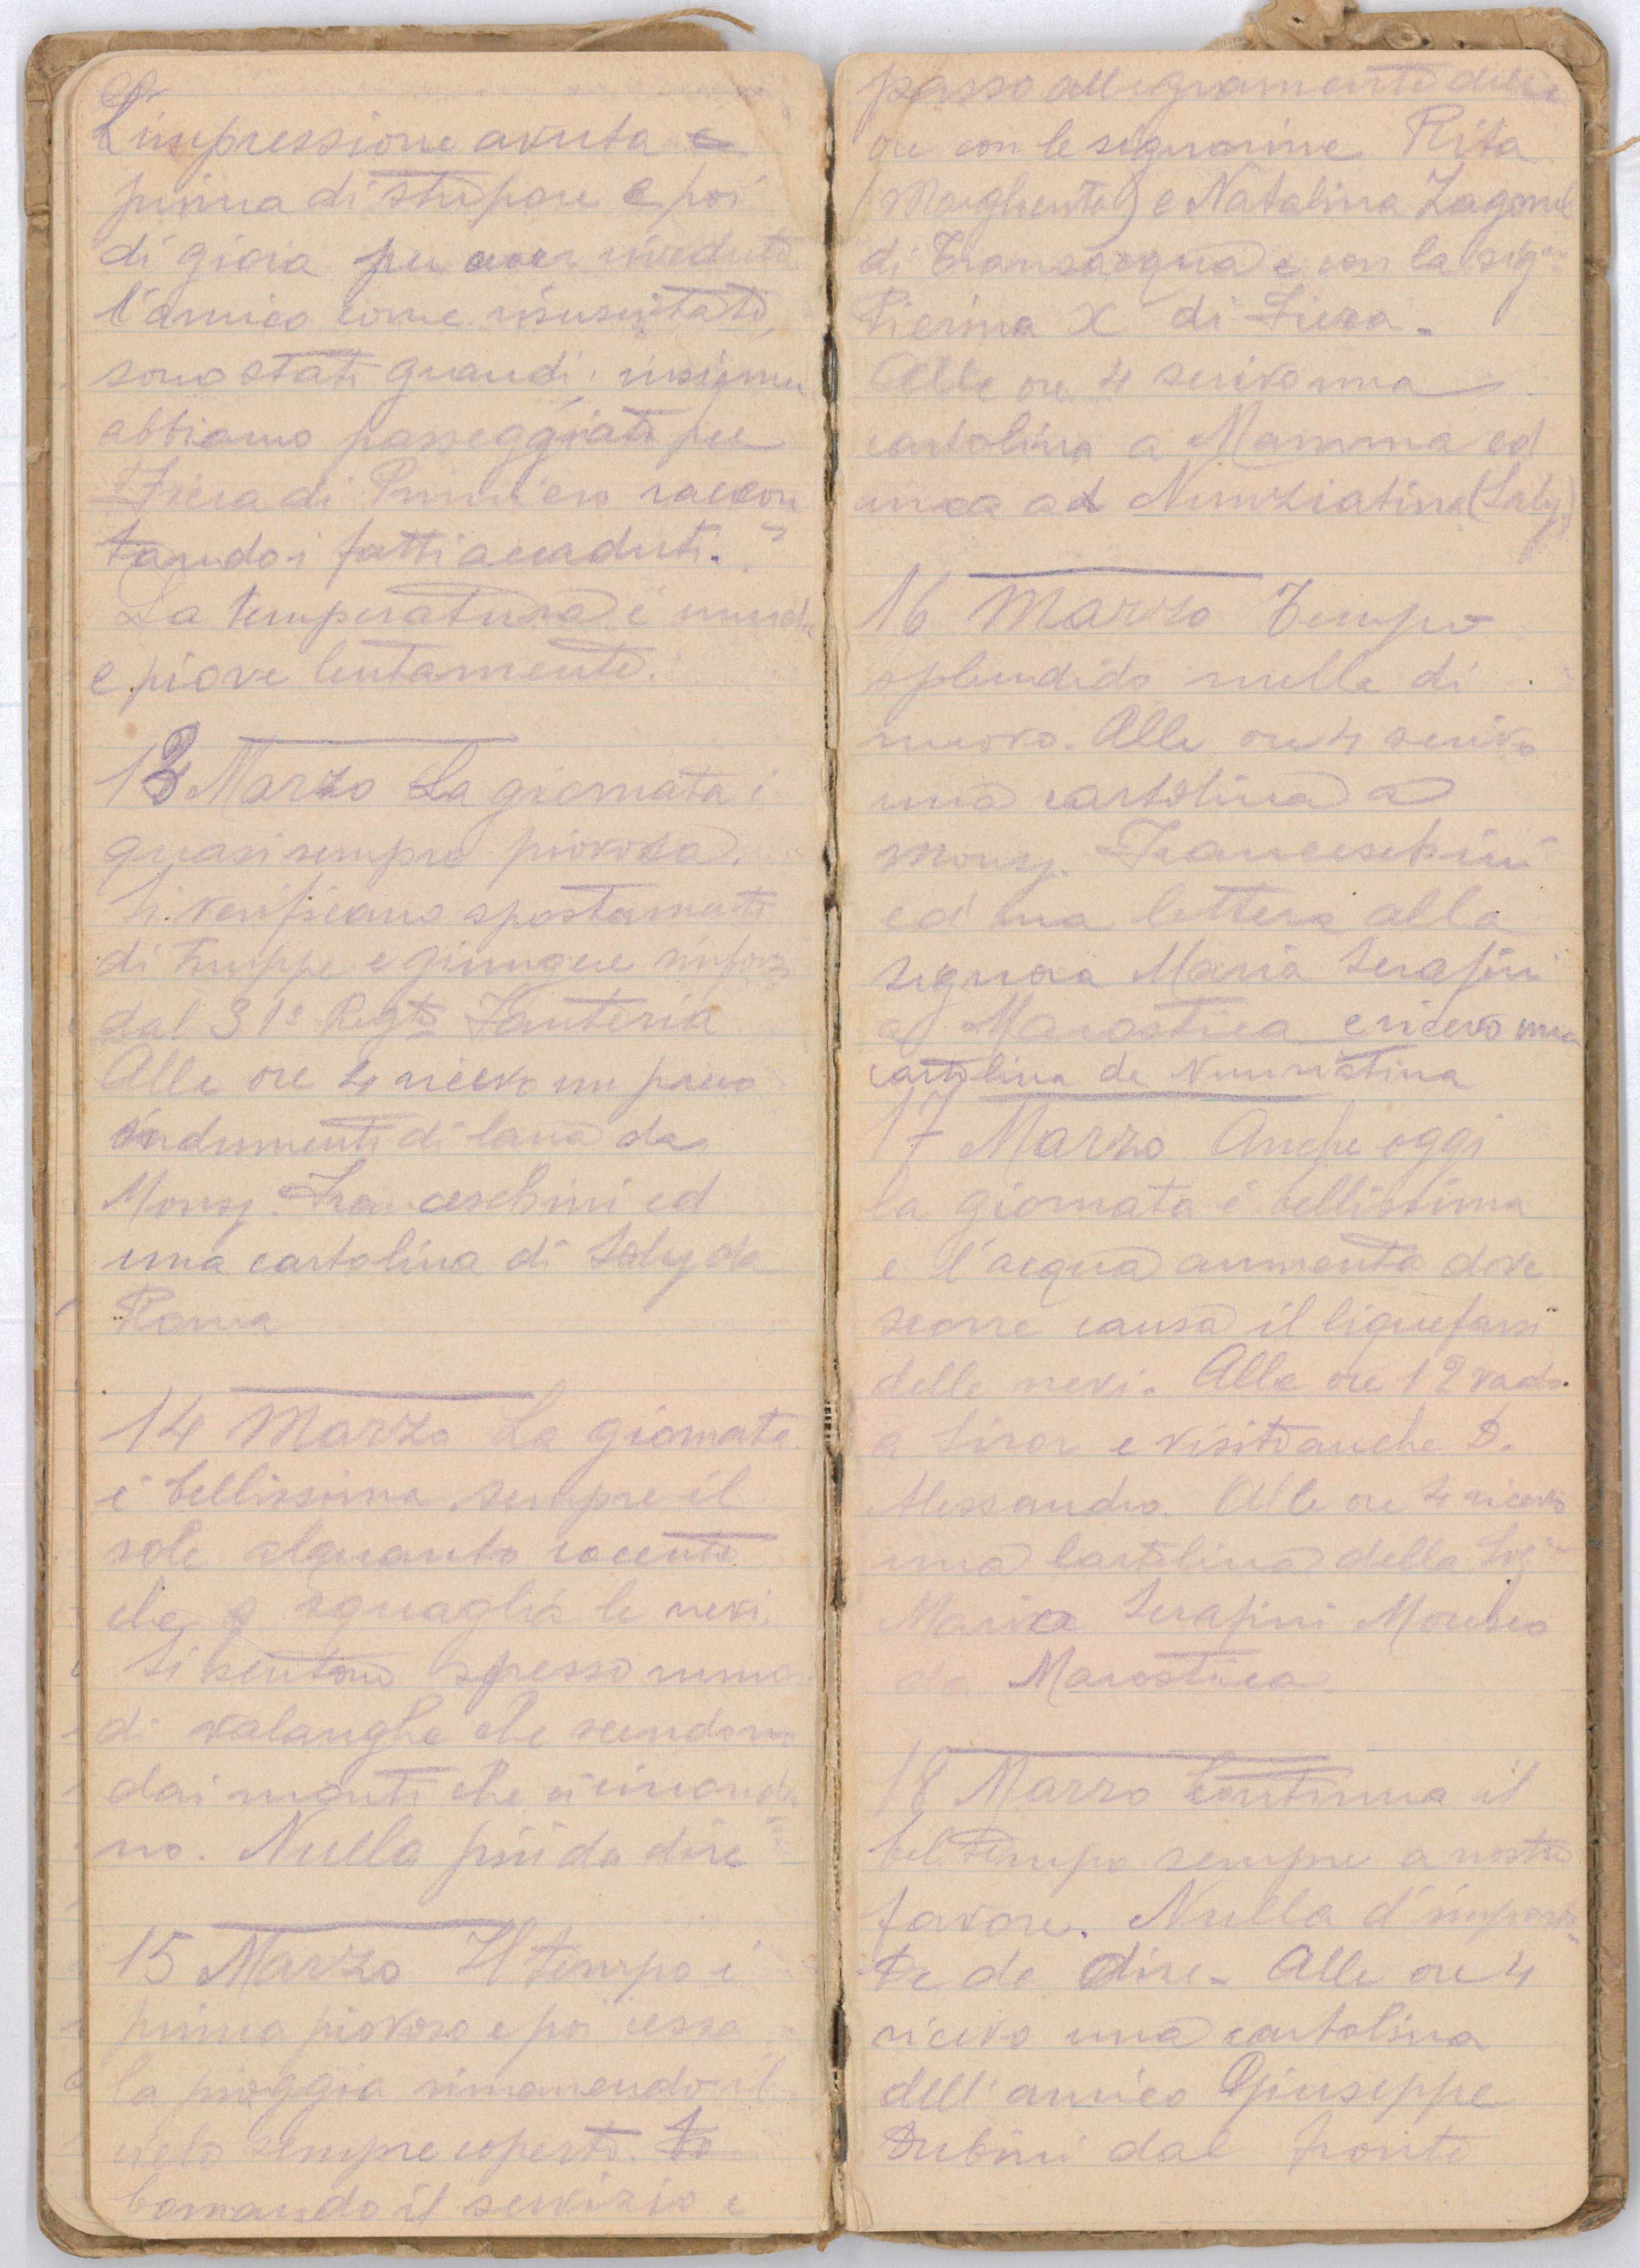 L'impressione avuta e
prima di stupore e poi
di gioia per aver riveduto
l'amico come risuscitato,
sono stati grandi; insieme
abbiamo passeggiato per
Fiera di Primiero raccon
tando i fatti accaduti.
La temperatura è umida
e piove lentamente.
13 Marzo La giornata è
quasi sempre piovosa.
Si verificano spostamenti
di truppe e giungere rinforzi
dal 31º Regto Fanteria
Alle ore 4 ricevo un pacco
indumenti di lana da
Monsg. Franceschini ed
una cartolina di Saly da
Roma
14 Marzo La giornata
è bellissima sempre il
sole alquanto cocente
che squaglia le nevi.
Si sentono spesso rumori
di valanghe che scendono
dai monti che ci circonda
no. Nulla più da dire
15 Marzo Il tempo è
prima piovoso e poi cessa
la pioggia rimanendo il
cielo sempre coperto. Io
Comando il servizio e
passo allegramente delle
ore con le signorine Rita
(Margherita) e Natalina Zagonel
di Transacqua e con la sig.na
Pierina X di Fiera.
Alle ore 4 scrivo una
cartolina a Mamma ed
una ad Nunziatina (Saly)
16 Marzo Tempo
splendido nulla di
nuovo. Alle ore 4 scrivo
una cartolina a
Monsg. Franceschini
ed una lettera alla
signora Maria Serafini
a Marostica e ricevo una
cartolina da Nunziatina
17 Marzo Anche oggi
la giornata è bellissima
e l'acqua aumenta dove
scorre causa il liquefarsi
delle nevi. Alle ore 12 vado
a Siror e visito anche D.
Alessandro. Alle ore 4 ricevo
una cartolina della Sig.ra
Maria Serafini
da Marostica
18 Marzo Continua il
bel tempo sempre a nostro
favore. Nulla d'importan
te da dire. Alle ore 4
ricevo una cartolina
dell'amico Giuseppe
Rubini dal fronte